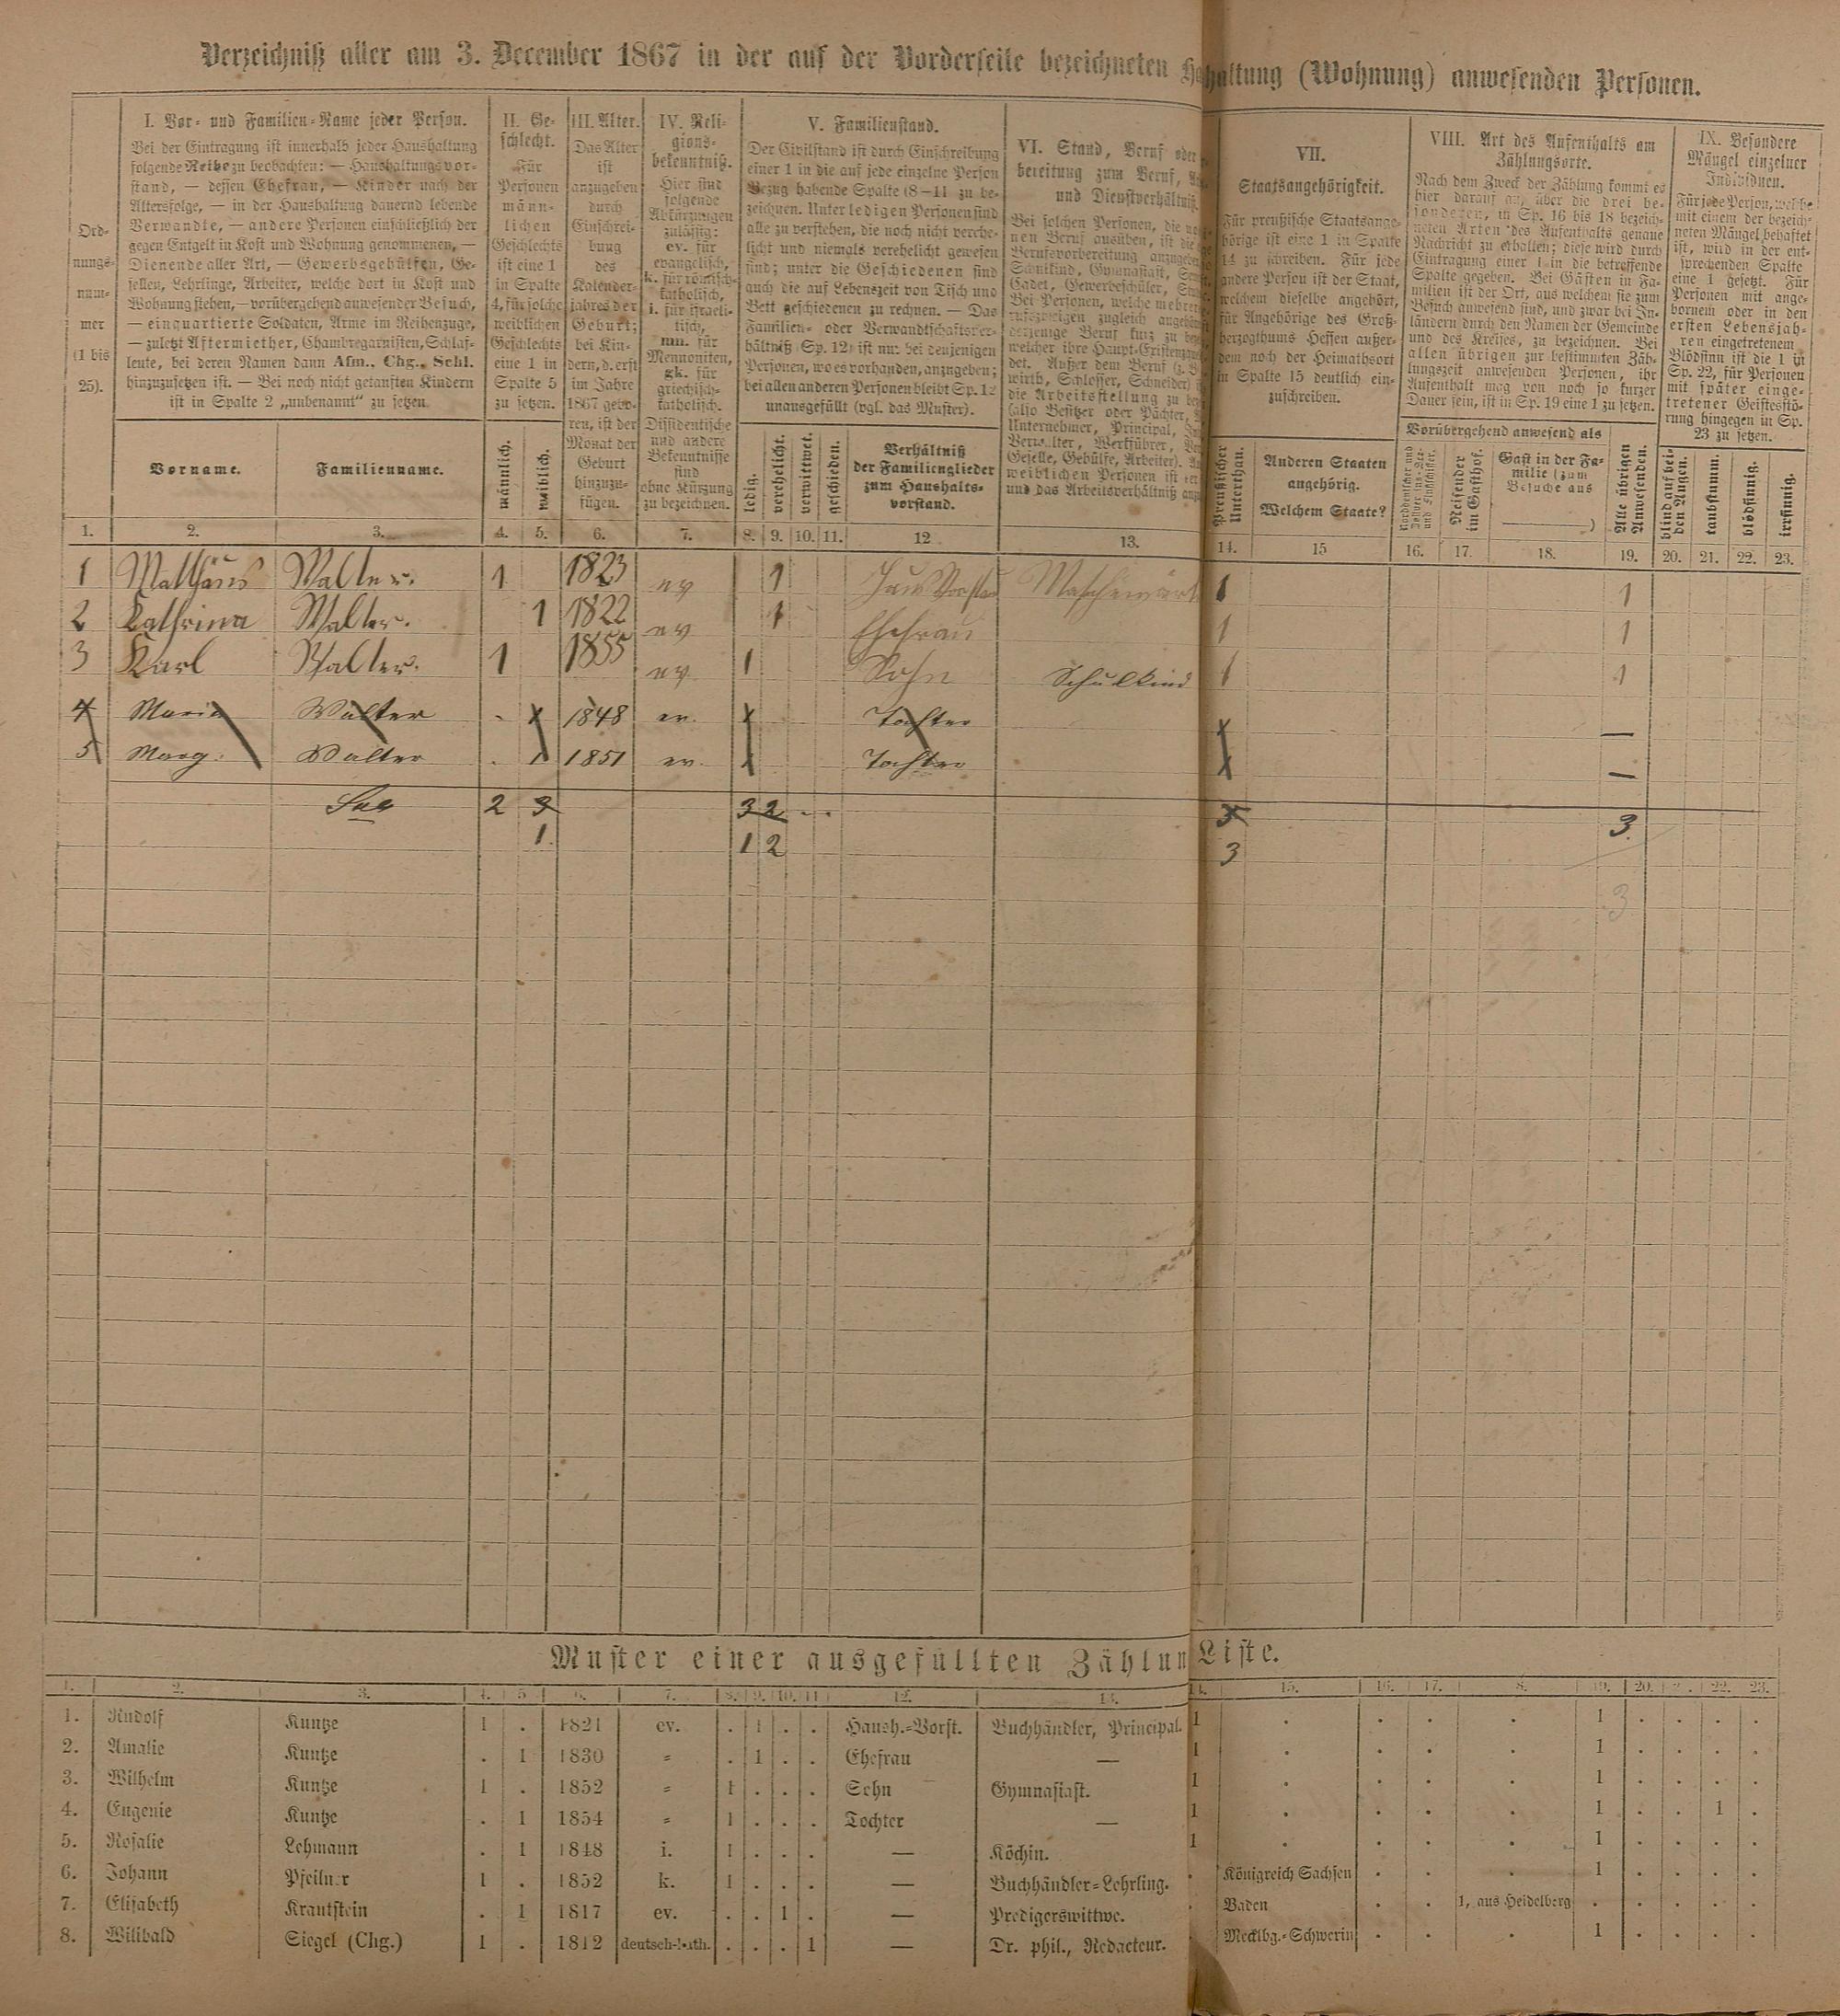 Verzeichniß aller am 3. December 1867 in der auf der Vorderseite bezeichneten Haushaltung (Wohnung) anwesenden Personen.
Ord-
nungs-
num-
mer
(1 bis
25).
I. Vor- und Familien-Name jeder Person.
Bei der Eintragung ist innerhalb jeder Haushaltung
folgende Reihe zu beobachten: — Haushaltungsvor-
stand, — dessen Ehefrau, — Kinder nach der
Altersfolge, — in der Haushaltung dauernd lebende
Verwandte, — andere Personen einschließlich der
gegen Entgelt in Kost und Wohnung genommenen, —
Dienende aller Art, — Gewerbsgehülfen, Ge-
sellen, Lehrlinge, Arbeiter, welche dort in Kost und
Wohnung stehen, — vorübergehend anwesender Besuch,
— einquartierte Soldaten, Arme im Reihenzuge,
— zuletzt Aftermiether, Chambregarnisten, Schlaf-
leute, bei deren Namen dann Afm., Chg., Schl.
hinzuzusetzen ist. — Bei noch nicht getauften Kindern
ist in Spalte 2 „unbenannt" zu setzen.
Vorname.
Familienname.
II. Ge-
schlecht.
Für
Personen
männ-
lichen
Geschlechts
ist eine 1
in Spalte
4, für solche
weiblichen
Geschlechts
eine 1 in
Spalte 5
zu setzen.
männlich.
weiblich.
III. Alter.
Das Alter
ist
anzugeben
durch
Einschrei-
bung
des
Kalender-
jahres der
Geburt;
bei Kin-
dern, d. erst
im Jahre
1867 gebo-
ren, ist der
Monat der
Geburt
hinzuzu-
fügen.
IV. Reli-
gions-
bekenntniß.
Hier sind
folgende
Abkürzungen
zulässig:
ev. für
evangelisch,
k. für römisch-
katholisch,
i. für israeli-
tisch,
mn. für
Mennoniten,
gk. für
griechisch-
katholisch.
Dissidentische
und andere
Bekenntnisse
sind
ohne Kürzung
zu bezeichnen.
V. Familienstand.
Der Civilstand ist durch Einschreibung
einer 1 in die auf jede einzelne Person
Bezug habende Spalte (8—11) zu be-
zeichnen. Unter ledigen Personen sind
alle zu verstehen, die noch nicht verehe-
licht und niemals verehelicht gewesen
sind; unter die Geschiedenen sind
auch die auf Lebenszeit von Tisch und
Bett geschiedenen zu rechnen. — Das
Familien- oder Verwandtschaftsver-
hältniß (Sp. 12) ist nur bei denjenigen
Personen, wo es vorhanden, anzugeben;
bei allen anderen Personen bleibt Sp. 12
unausgefüllt (vgl. das Muster).
ledig.
verehelicht.
verwittwet.
geschieden.
Verhältniß
der Familienglieder
zum Haushalts-
vorstand.
VI. Stand, Beruf oder
bereitung zum Beruf,
und Dienstverhältniß.
Bei solchen Personen, die
nen Beruf ausüben, ist die
Berufsvorbereitung anzugeben
Schulkind, Gymnasiast,
Cadet, Gewerbeschüler,
Bei Personen, welche mehrere
zugleich
derjenige Beruf kurz zu
welcher ihre Haupt-Existenz
det. Außer dem Beruf (z. B.
wirth, Schlosser, Schneider)
die Arbeitsstellung zu
(also Besitzer oder Pächter,
Unternehmer, Principal,
Verwalter, Werkführer,
Geselle, Gehülfe, Arbeiter).
weiblichen Personen ist
und das Arbeitsverhältniß
VII.
Staatsangehörigkeit.
Für preußische Staatsange-
hörige ist eine 1 in Spalte
14 zu schreiben. Für jede
andere Person ist der Staat,
welchem dieselbe angehört,
für Angehörige des Groß-
herzogthums Hessen außer-
dem noch der Heimathsort
in Spalte 15 deutlich ein-
zuschreiben.
Preußischer
Unterthan.
Anderen Staaten
angehörig.
Welchem Staate?
VIII. Art des Aufenthalts am
Zählungsorte.
Nach dem Zweck der Zählung kommt es
hier darauf an, über die drei be-
sonderen, in Sp. 16 bis 18 bezeich-
neten Arten des Aufenthalts genaue
Nachricht zu erhalten; diese wird durch
Eintragung einer 1 in die betreffende
Spalte gegeben. Bei Gästen in Fa-
milien ist der Ort, aus welchem sie zum
Besuch anwesend sind, und zwar bei In-
ländern durch den Namen der Gemeinde
und des Kreises, zu bezeichnen. Bei
allen übrigen zur bestimmten Zäh-
lungszeit anwesenden Personen, ihr
Aufenthalt mag von noch so kurzer
Dauer sein, ist in Sp. 19 eine 1 zu setzen.
Vorübergehend anwesend als
Reisender
im Gasthof.
Gast in der Fa-
milie (zum
Besuche aus
)
Alle übrigen
Anwesenden.
IX. Besondere
Mängel einzelner
Individuen.
Für jede Person, welche
mit einem der bezeich-
neten Mängel behaftet
ist, wird in der ent-
sprechenden Spalte
eine 1 gesetzt. Für
Personen mit ange-
bornem oder in den
ersten Lebensjah-
ren eingetretenem
Blödsinn ist die 1 in
Sp. 22, für Personen
mit später einge-
tretener Geistesstö-
rung hingegen in Sp.
23 zu setzen.
blind auf bei-
den Augen.
taubstumm.
blödsinnig.
irrsinnig.
1. 2. 3. 4. 5. 6. 7. 8. 9. 10. 11. 12 13. 14. 15 16. 17. 18. 19. 20. 21. 22. 23.
1 Matthäus Walter. 1 1823 ev 1 Haus Vorstand 1 1
2 Kathrina Walter. 1 1822 ev 1 Ehefrau 1 1
3 Karl Walter. 1 1855 ev 1 Sohn Schulkind 1 1
4 Maria Walter . 1 1848 ev. 1 Tochter 1 —
5 Marg. Walter . 1 1851 ev. 1 Tochter 1 —
2 3 3 2 . . 5 3
1. 1 2 3
3
Muster einer ausgefüllten Zählun Liste.
1. 2. 3. 4. 5 6. 7. 8. 9. 10. 11 12. 13. 14. 15. 16. 17. 8. 19. 20. 22. 23.
1. Rudolf Kuntze 1 . 1821 ev. . 1 . . Haush.-Vorst. Buchhändler, Principal. 1 . . . . 1 . . . .
2. Amalie Kuntze . 1 1830 = . 1 . . Ehefrau — 1 . . . . 1 . . . .
3. Wilhelm Kuntze 1 . 1852 = 1 . . . Sohn Gymnasiast. 1 . . . . 1 . . . .
4. Eugenie Kuntze . 1 1854 = 1 . . . Tochter — 1 . . . . 1 . . 1 .
5. Rosalie Lehmann . 1 1848 i. 1 . . . — Köchin. 1 . . . . 1 . . . .
6. Johann Pfeilner 1 . 1852 k. 1 . . . — Buchhändler-Lehrling. . Königreich Sachsen . . . 1 . . . .
7. Elisabeth Krautstein . 1 1817 ev. . . 1 . — Predigerswittwe. . Baden . . 1, aus Heidelberg . . . . .
8. Wilibald Siegel (Chg.) 1 . 1812 deutsch-kath. . . . 1 — Dr. phil., Redacteur. . Mecklbg.-Schwerin . . . 1 . . . .